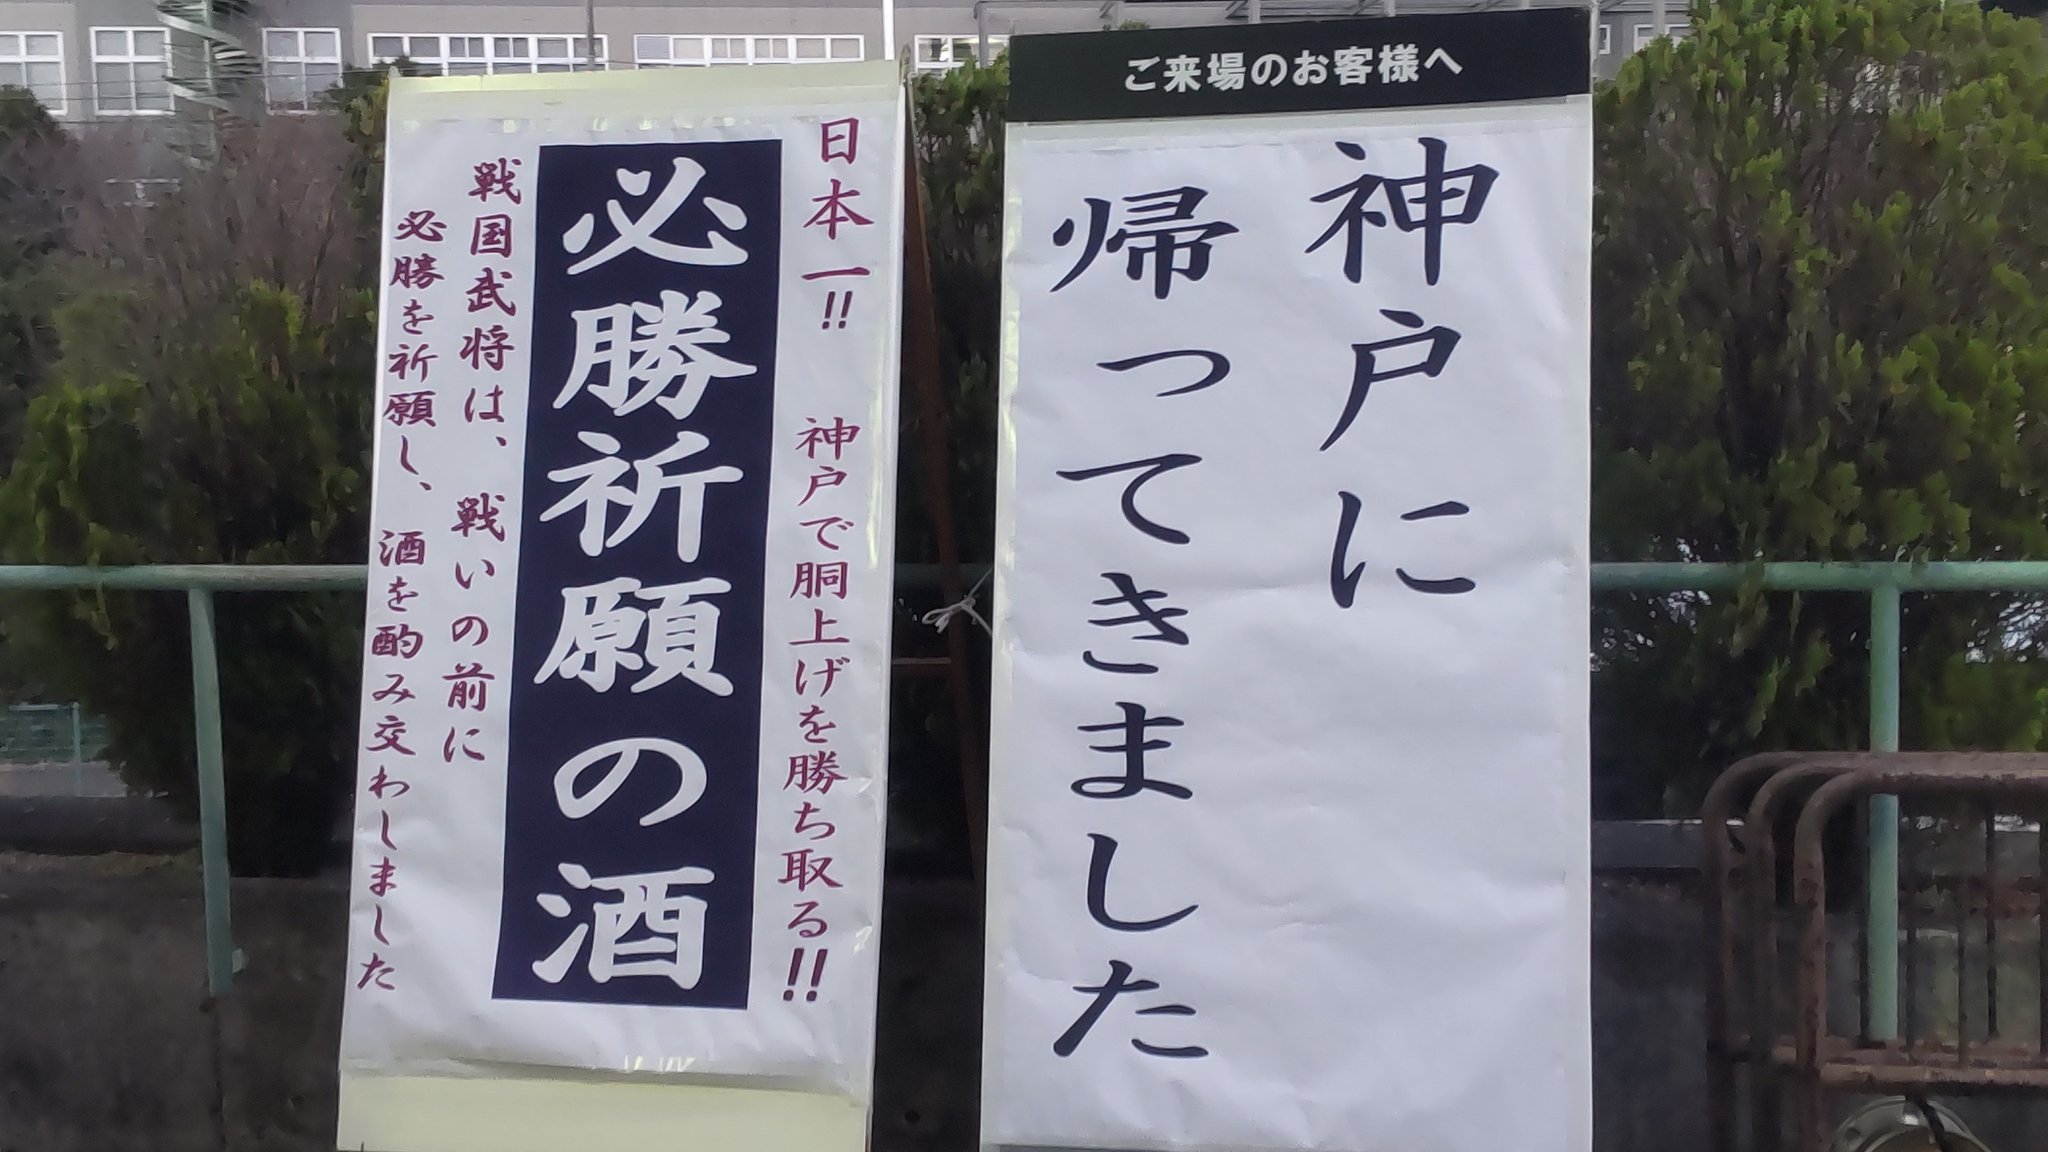 ご来場のお客様へ
神戸に
帰ってきました
日本一!! 神戸で胴上げを勝ち取る!!
必勝祈願の酒
戦国武将は、戦いの前に
必勝を祈願し、酒を酌み交わしました